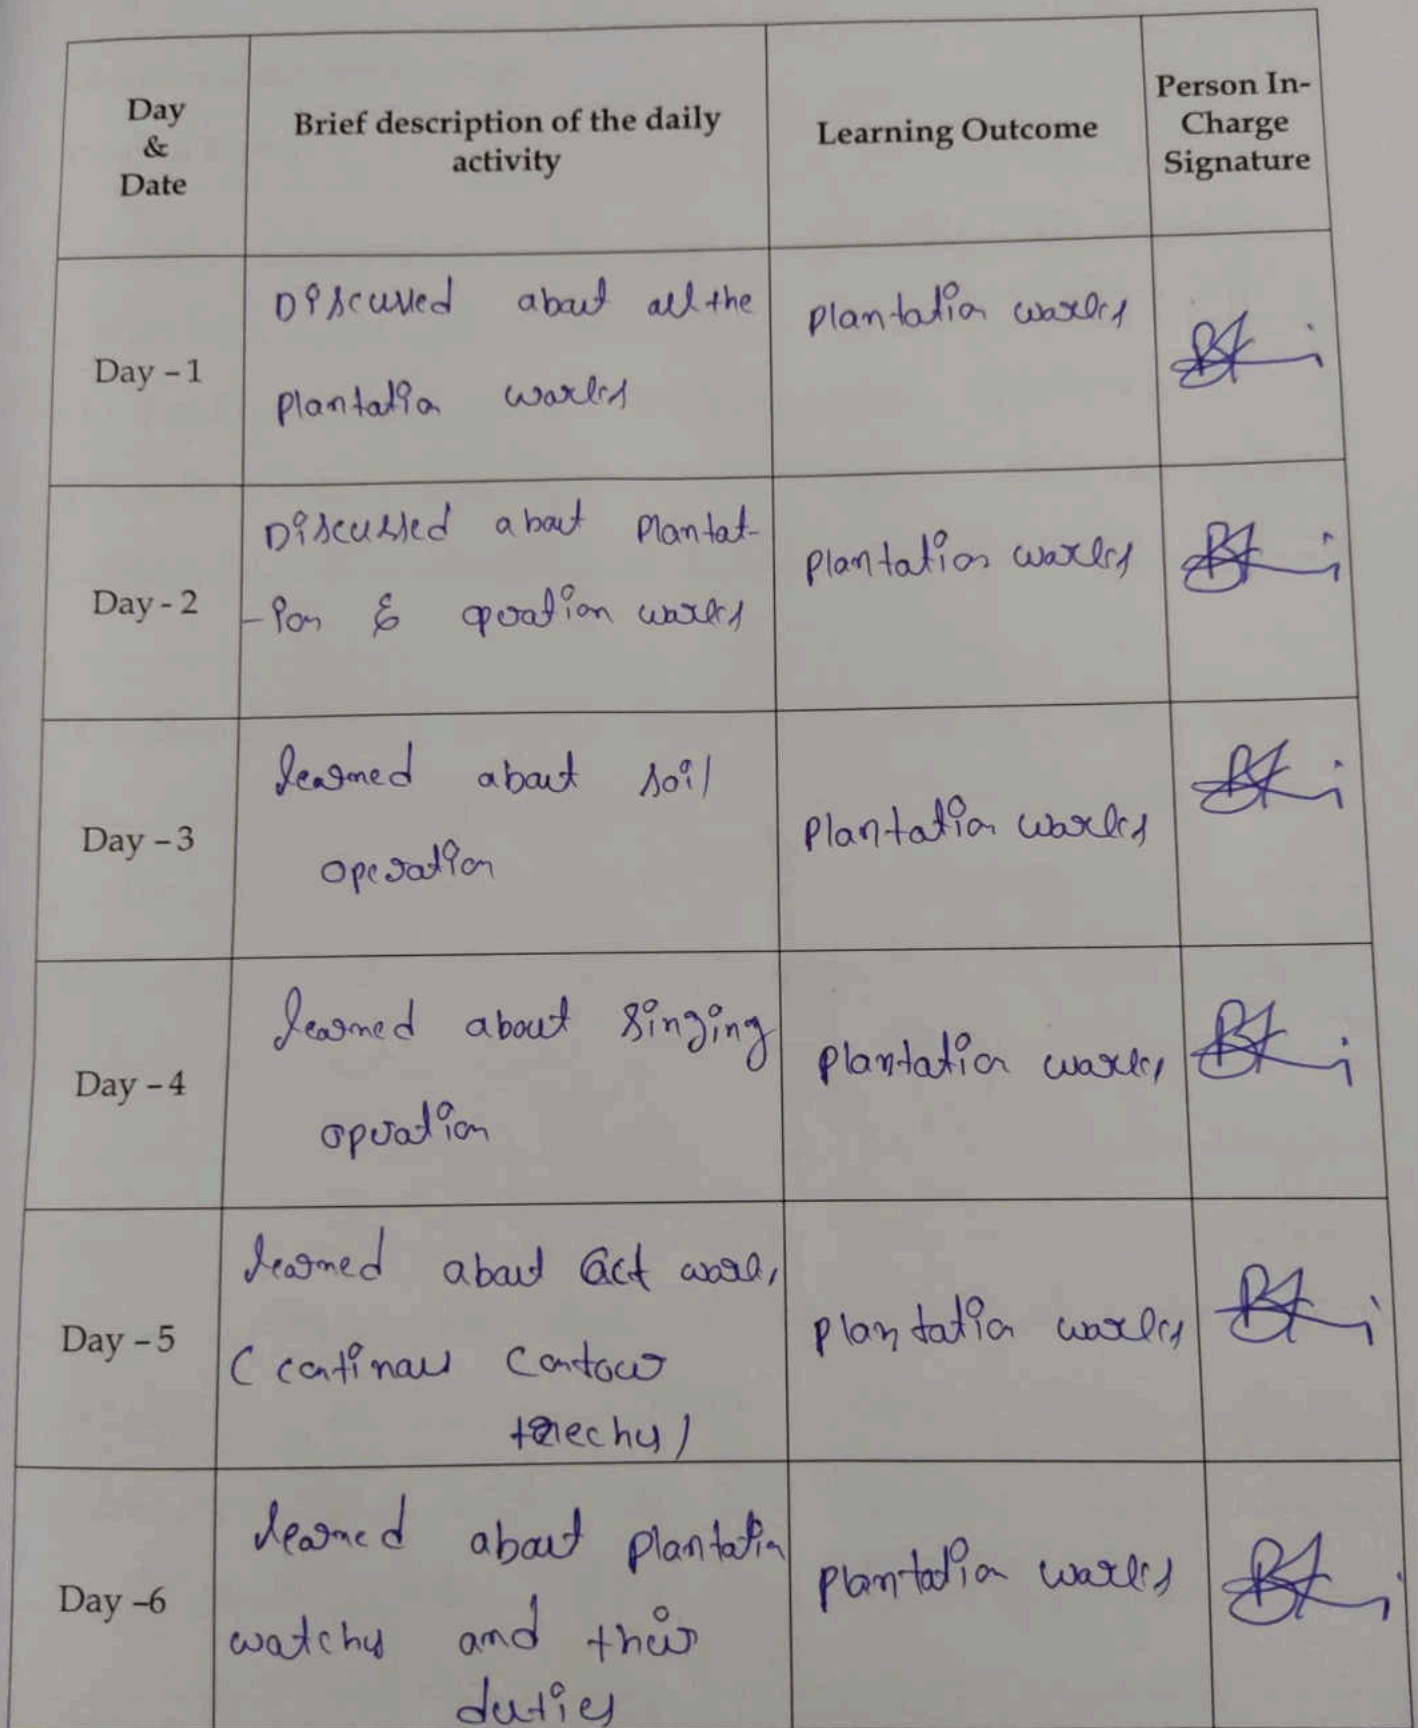 Day
&
Date
Brief description of the daily
activity
Learning Outcome
Person In-
Charge
Signature
Day - 1
Discussed about all the
plantation works
plantation works
Day - 2
Discussed about plantat-
-ion & operation works
plantation works
Day - 3
learned about soil
operation
plantation works
Day - 4
learned about singing
operation
plantation works
Day - 5
learned about cct work,
(continous contour
trenchs)
plantation works
Day -6
learned about plantation
watchs and their
duties
plantation works